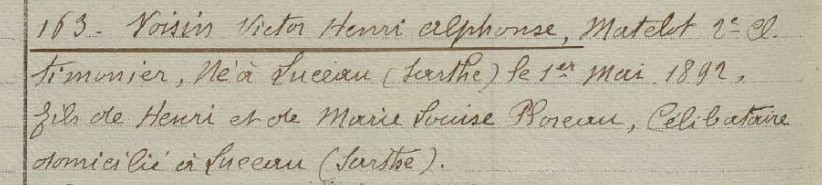 163 - Voisin Victor Henri Alphonse, Matelot 2e Cl.
timonier, Né à Luceau (Sarthe) le 1er Mai 1892,
fils de Henri et de Marie Louise Ploreau, Célibataire
domicilié à Luceau (Sarthe).